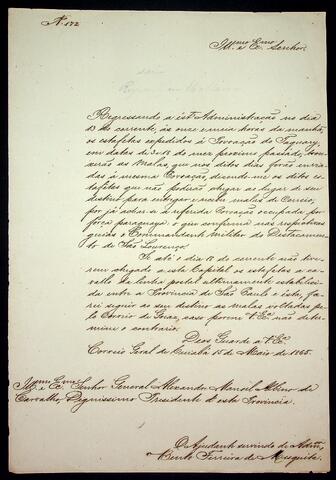 Nº 172
Illmo e Exmo Senhor.
Regressando a esta Administração no dia
13 do corrente, ás onze e meia horas da manhã,
os estafetas expedidos á Povoação do Taquary,
com datas de 3 e 18 do mez proximo passado, trou-
xerão as Malas que nos ditos dias forão envia-
das á mesma Povoação, dizendo-me os ditos es-
tafetas que não poderão chegar ao lugar de seu
destino para entregar e receber malas do Correio,
por já achar-se a referida Povoação occupada por
força paraguaya: o que confirma nas respectivas
guias o Commandante Militar do Destacamen-
to de São Lourenço.
Se até o dia 17 do corrente não tive-
rem chegado a esta Capital os estafetas a ca-
vallo da linha postal ultimamente estabeleci-
da entre a Provincia de São Paulo e esta, fa-
rei seguir ao seu destino as malas voltadas pe-
lo Correio de Goiaz, caso porem V. Exª não deter-
mine o contrario.
Deos Guarde a V. Exª
Correio Geral de Cuiabá 15 de Maio de 1865.
Illmo e Exmo Senhor General Alexandre Manoel Albino de
Carvalho, Dignissimo Presidente desta Provincia.
O Ajudante servindo de Admor
Bento Ferreira de Mesquita.